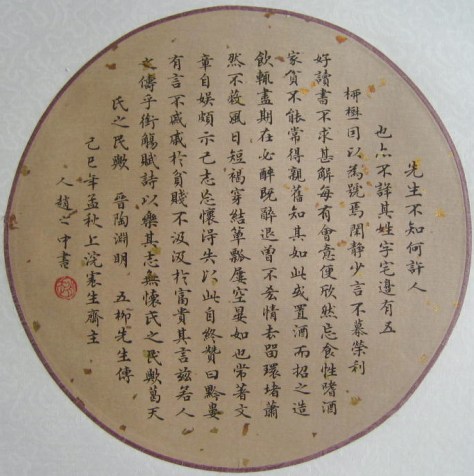 先生不知何許人
也亦不詳其姓字宅邊有五
柳樹因以為號焉閑静少言不慕榮利
好讀書不求甚解每有會意便欣然忘食性嗜酒
家貧不能常得親舊知其如此或置酒而招之造
飲輒盡期在必醉既醉退曾不吝情去留環堵蕭
然不蔽風日短褐穿結簞瓢屢空晏如也常著文
章自娛頗示己志忘懷得失以此自終贊曰黔婁
有言不戚戚於貧賤不汲汲於富貴其言茲若人
之儔乎銜觴賦詩以樂其志無懷氏之民歟葛天
氏之民歟 晉陶淵明 五柳先生傳
己巳年孟秋上浣生齋主
人趙之中書